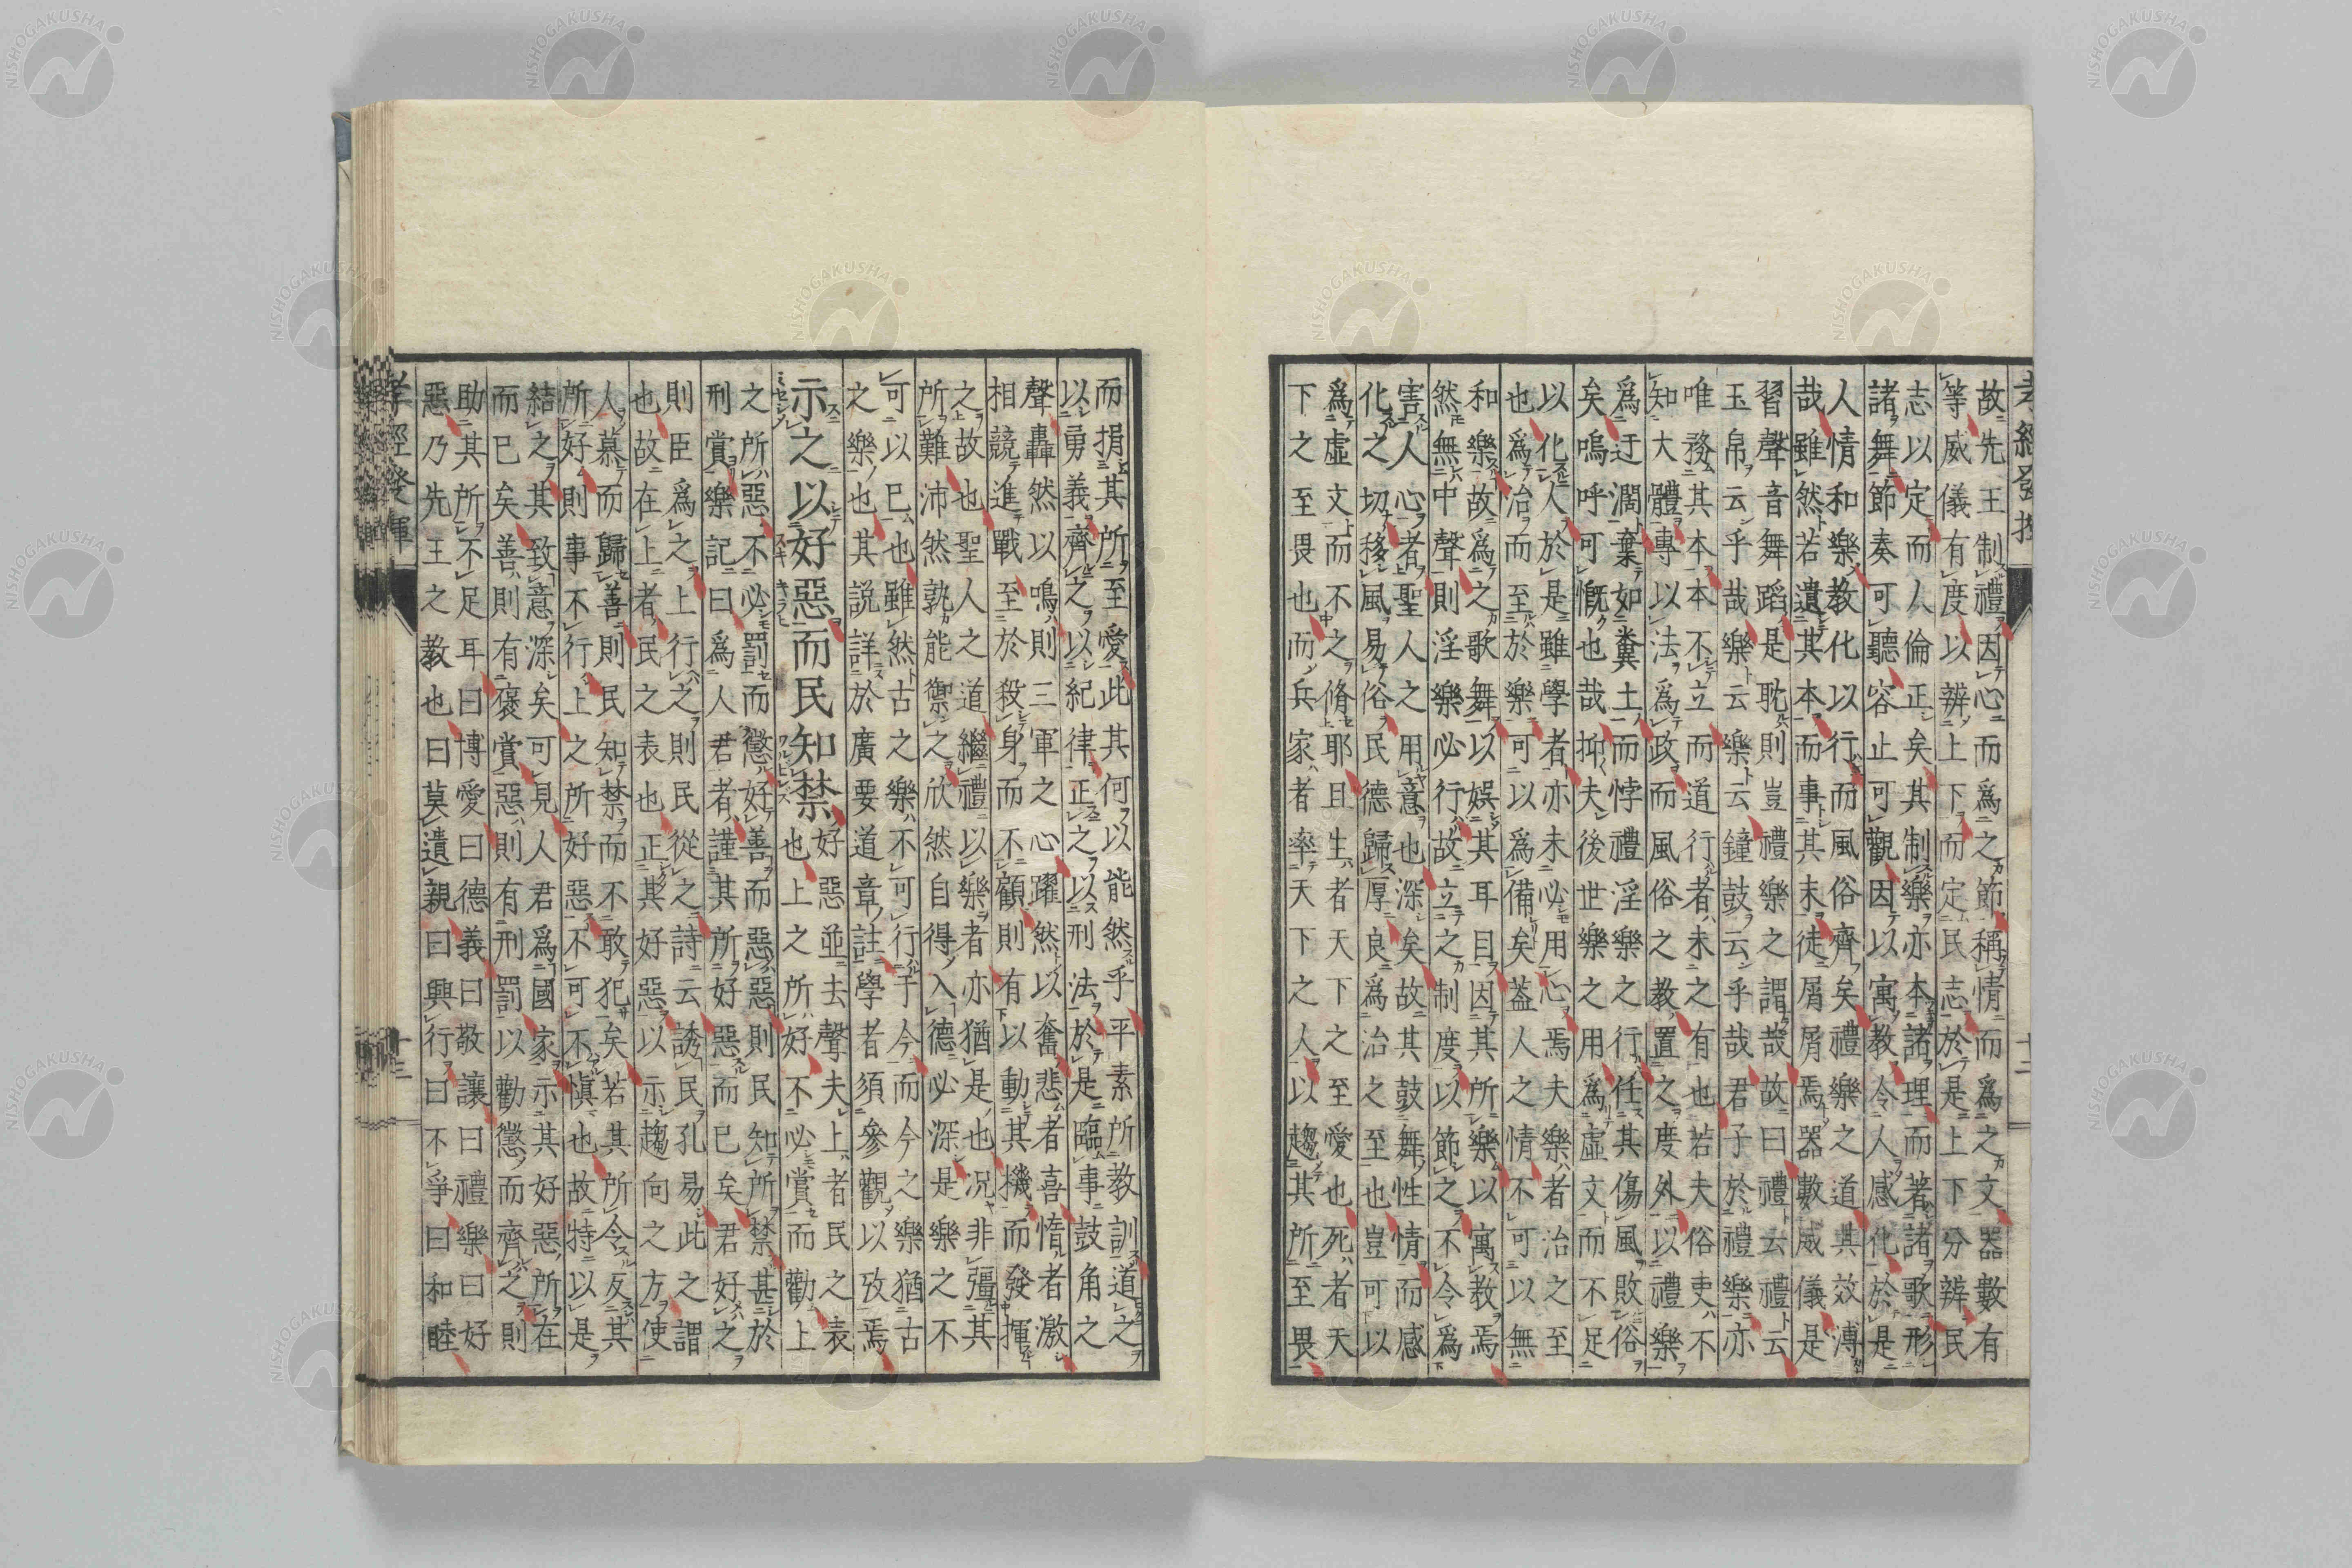 故先王制禮因心而爲之節稱情而爲之文器數有
等威儀有度以辨上下而定民志於是上下分辨民
志以定而人倫正矣其制樂亦本諸理而著諸歌形
諸舞節奏可聽容止可觀因以寓教令人感化於是
人情和樂教化以行而風俗齊矣禮樂之道其效溥
哉雖然若遺其本而事其末徒屑屑焉器數威儀是
習聲音舞蹈是耽則豈禮樂之謂哉故曰禮云禮云
玉帛云乎哉樂云樂云鐘鼓云乎哉君子於禮樂亦
唯務其本本不立而道行者未之有也若夫俗吏不
知大體專以法爲政而風俗之教置之度外以禮樂
爲迂濶棄如糞土而悖禮淫樂之行任其傷風敗俗
矣嗚呼可慨也哉抑夫後世樂之用爲虛文而不足
以化人於是雖學者亦未必用心焉夫樂者治之至
也爲治而至於樂可以爲備矣蓋人之情不可以無
和樂故爲之歌舞以娯其耳目因其所樂以寓教焉
然無中聲則淫樂必行故立之制度以節之不令爲
害人心者聖人之用意也深矣故其鼓舞性情而感
化之切移風易俗民德歸厚良爲治之至也豈可以
爲虛文而不之脩耶且生者天下之至愛也死者天
下之至畏也而兵家者率天下之人以趨其所至畏
而捐其所至愛此其何以能然乎平素所教訓道之
以勇義齊之以紀律正之以刑法於是臨事鼓角之
聲轟然以鳴則三軍之心躍然以奮悲者喜惰者激
相競進戰至於殺身而不顧則有以動其機而發揮
之故也聖人之道繼禮以樂者亦猶是也况非彊其
所難沛然孰能禦之欣然自得入德必深是樂之不
可以已也雖然古之樂不可行于今而今之樂猶古
之樂也其説詳於廣要道章註學者須參觀以攷焉
示之以好惡而民知禁好惡並去聲夫上者民之表
也上之所好不必賞而勸上
之所惡不必罰而懲好善而惡惡則民知所禁甚於
刑賞樂記曰爲人君者謹其所好惡而已矣君好之
則臣爲之上行之則民從之詩云誘民孔易此之謂
也故在上者民之表也正其好惡以示趨向之方使
人慕而歸善則民知禁而不敢犯矣若其所令反其
所好則事不行上之所好惡不可不愼也故特以是
結之其致意深矣可見人君爲國家示其好惡所在
而已矣善則有褒賞惡則有刑罰以勸懲而齊之則
助其所不足耳曰博愛曰德義曰敬讓曰禮樂曰好
惡乃先王之教也曰莫遺親曰興行曰不爭曰和睦